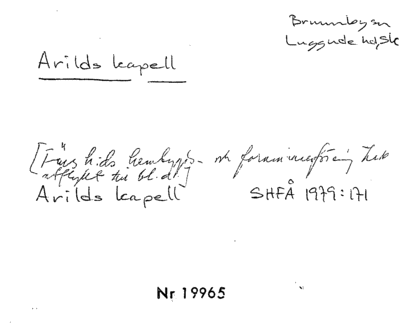 Brunnbysn
Luggude hdSk
Arilds kapell
[Fårhids hembygds- och fornminnesförening
utflykt till bl.a.]
Arilds kapell SHFÅ 1979:171
Nr 19965